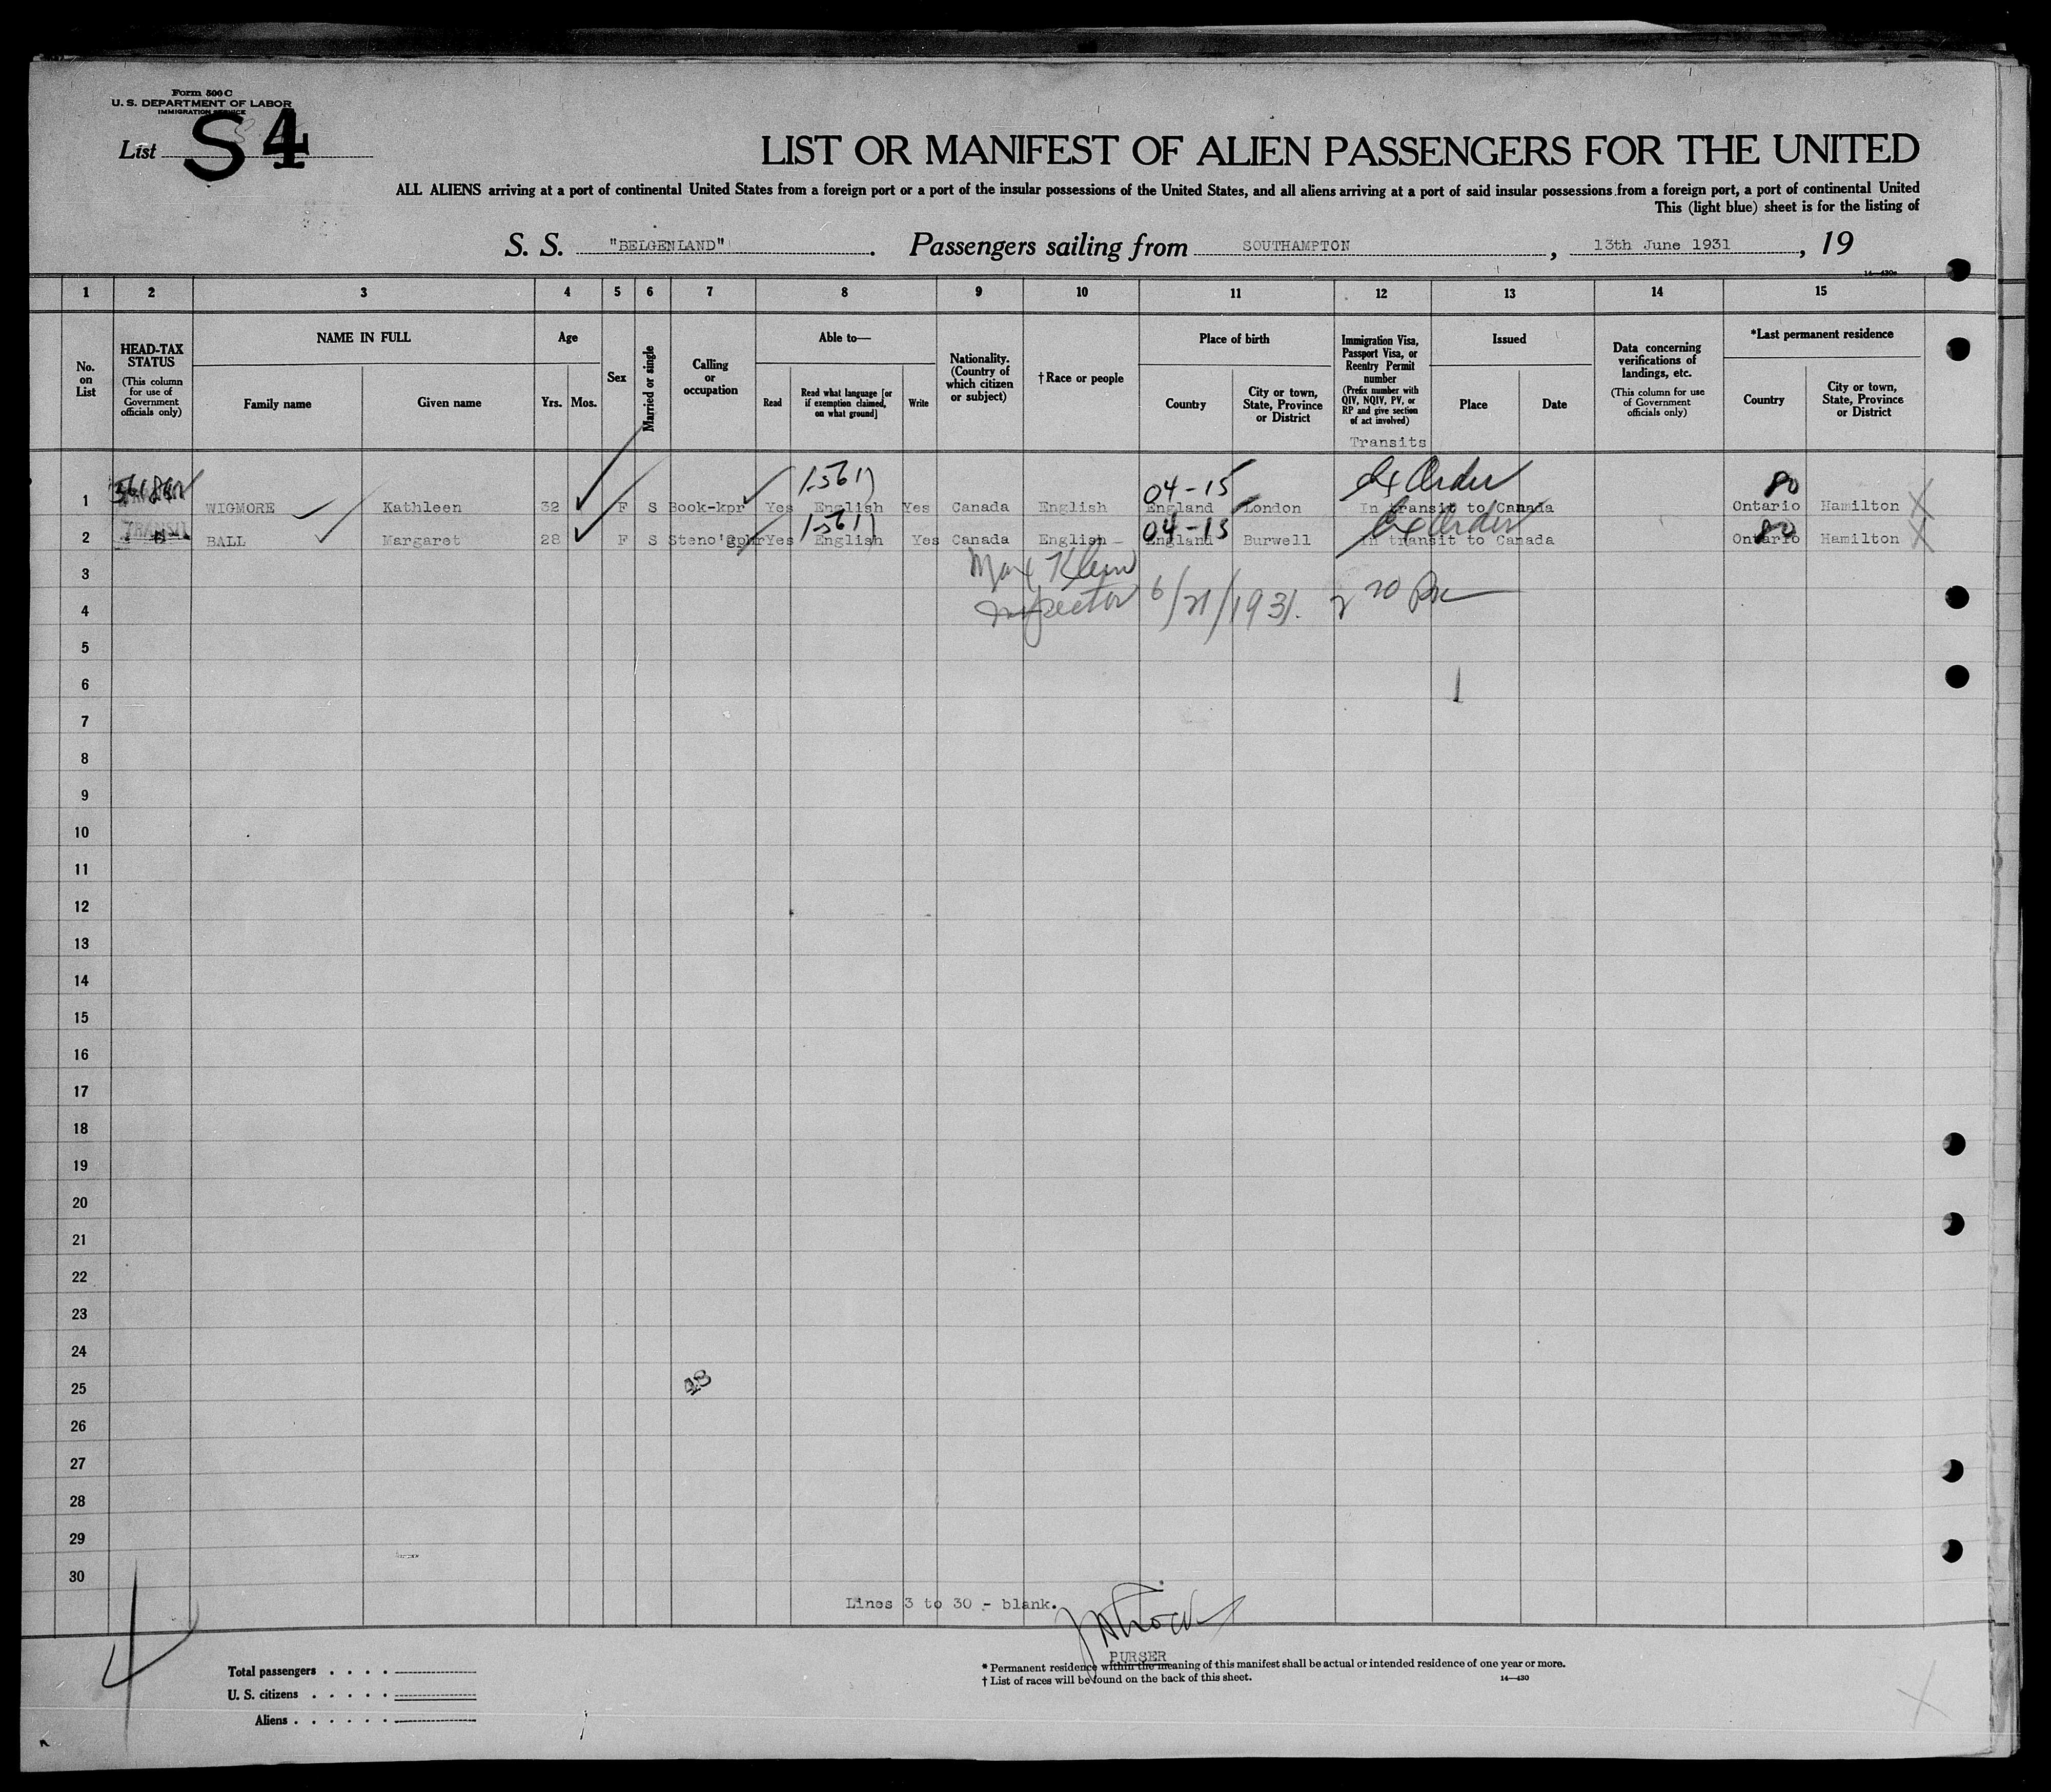 Form 500 C
U. S. DEPARTMENT OF LABOR
IMMIGRATION SERVICE
List S 4
LIST OR MANIFEST OF ALIEN PASSENGERS FOR THE UNITED
ALL ALIENS arriving at a port of continental United States from a foreign port or a port of the insular possessions of the United States, and all aliens arriving at a port of said insular possessions from a foreign port, a port of continental United
This (light blue) sheet is for the listing of
S. S. "BELGENLAND". Passengers sailing from SOUTHAMPTON, 13th June 1931, 19
14—430a
1 2 3 4 5 6 7 8 9 10 11 12 13 14 15
No. on List
HEAD-TAX STATUS
(This column for use of Government officials only)
NAME IN FULL
Family name
Given name
Age
Yrs. Mos.
Sex
Married or single
Calling or occupation
Able to—
Read
Read what language [or if exemption claimed, on what ground]
Write
Nationality. (Country of which citizen or subject)
†Race or people
Place of birth
Country
City or town, State, Province or District
Immigration Visa, Passport Visa, or Reentry Permit number
(Prefix number with QIV, NQIV, PV, or RP and give section of act involved)
Transits
Issued
Place
Date
Data concerning verifications of landings, etc.
(This column for use of Government officials only)
*Last permanent residence
Country
City or town, State, Province or District
04-15 Ex Order 80
1 WIGMORE Kathleen 32 F S Book-kpr Yes English Yes Canada English England London In transit to Canada Ontario Hamilton
TRANSIT 04-15 Ex Order 80
2 BALL Margaret 28 F S Steno'gphr Yes English Yes Canada English England Burwell In transit to Canada Ontario Hamilton
3 Max Klein
4 Inspector 6/21/1931.
5
6
7
8
9
10
11
12
13
14
15
16
17
18
19
20
21
22
23
24
25 48
26
27
28
29
30
Lines 3 to 30 - blank.
PURSER
Total passengers . . . .
U. S. citizens . . . . .
Aliens . . . . . .
* Permanent residence within the meaning of this manifest shall be actual or intended residence of one year or more.
† List of races will be found on the back of this sheet.
14—430